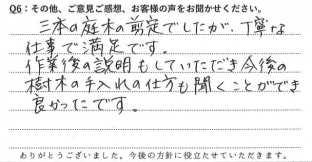 Q6：その他、ご意見ご感想、お客様の声をお聞かせください。
三本の庭木の剪定でしたが、丁寧な
仕事で満足です。
作業後の説明もしていただき今後の
樹木の手入れの仕方も聞くことができ
良かったです。
ありがとうございました。今後の方針に役立たせていただきます。